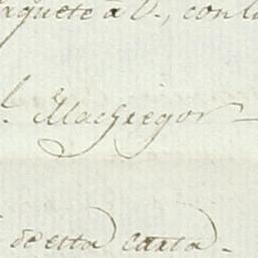 aquete a V., con l
l. MacGregor
de esta carta.